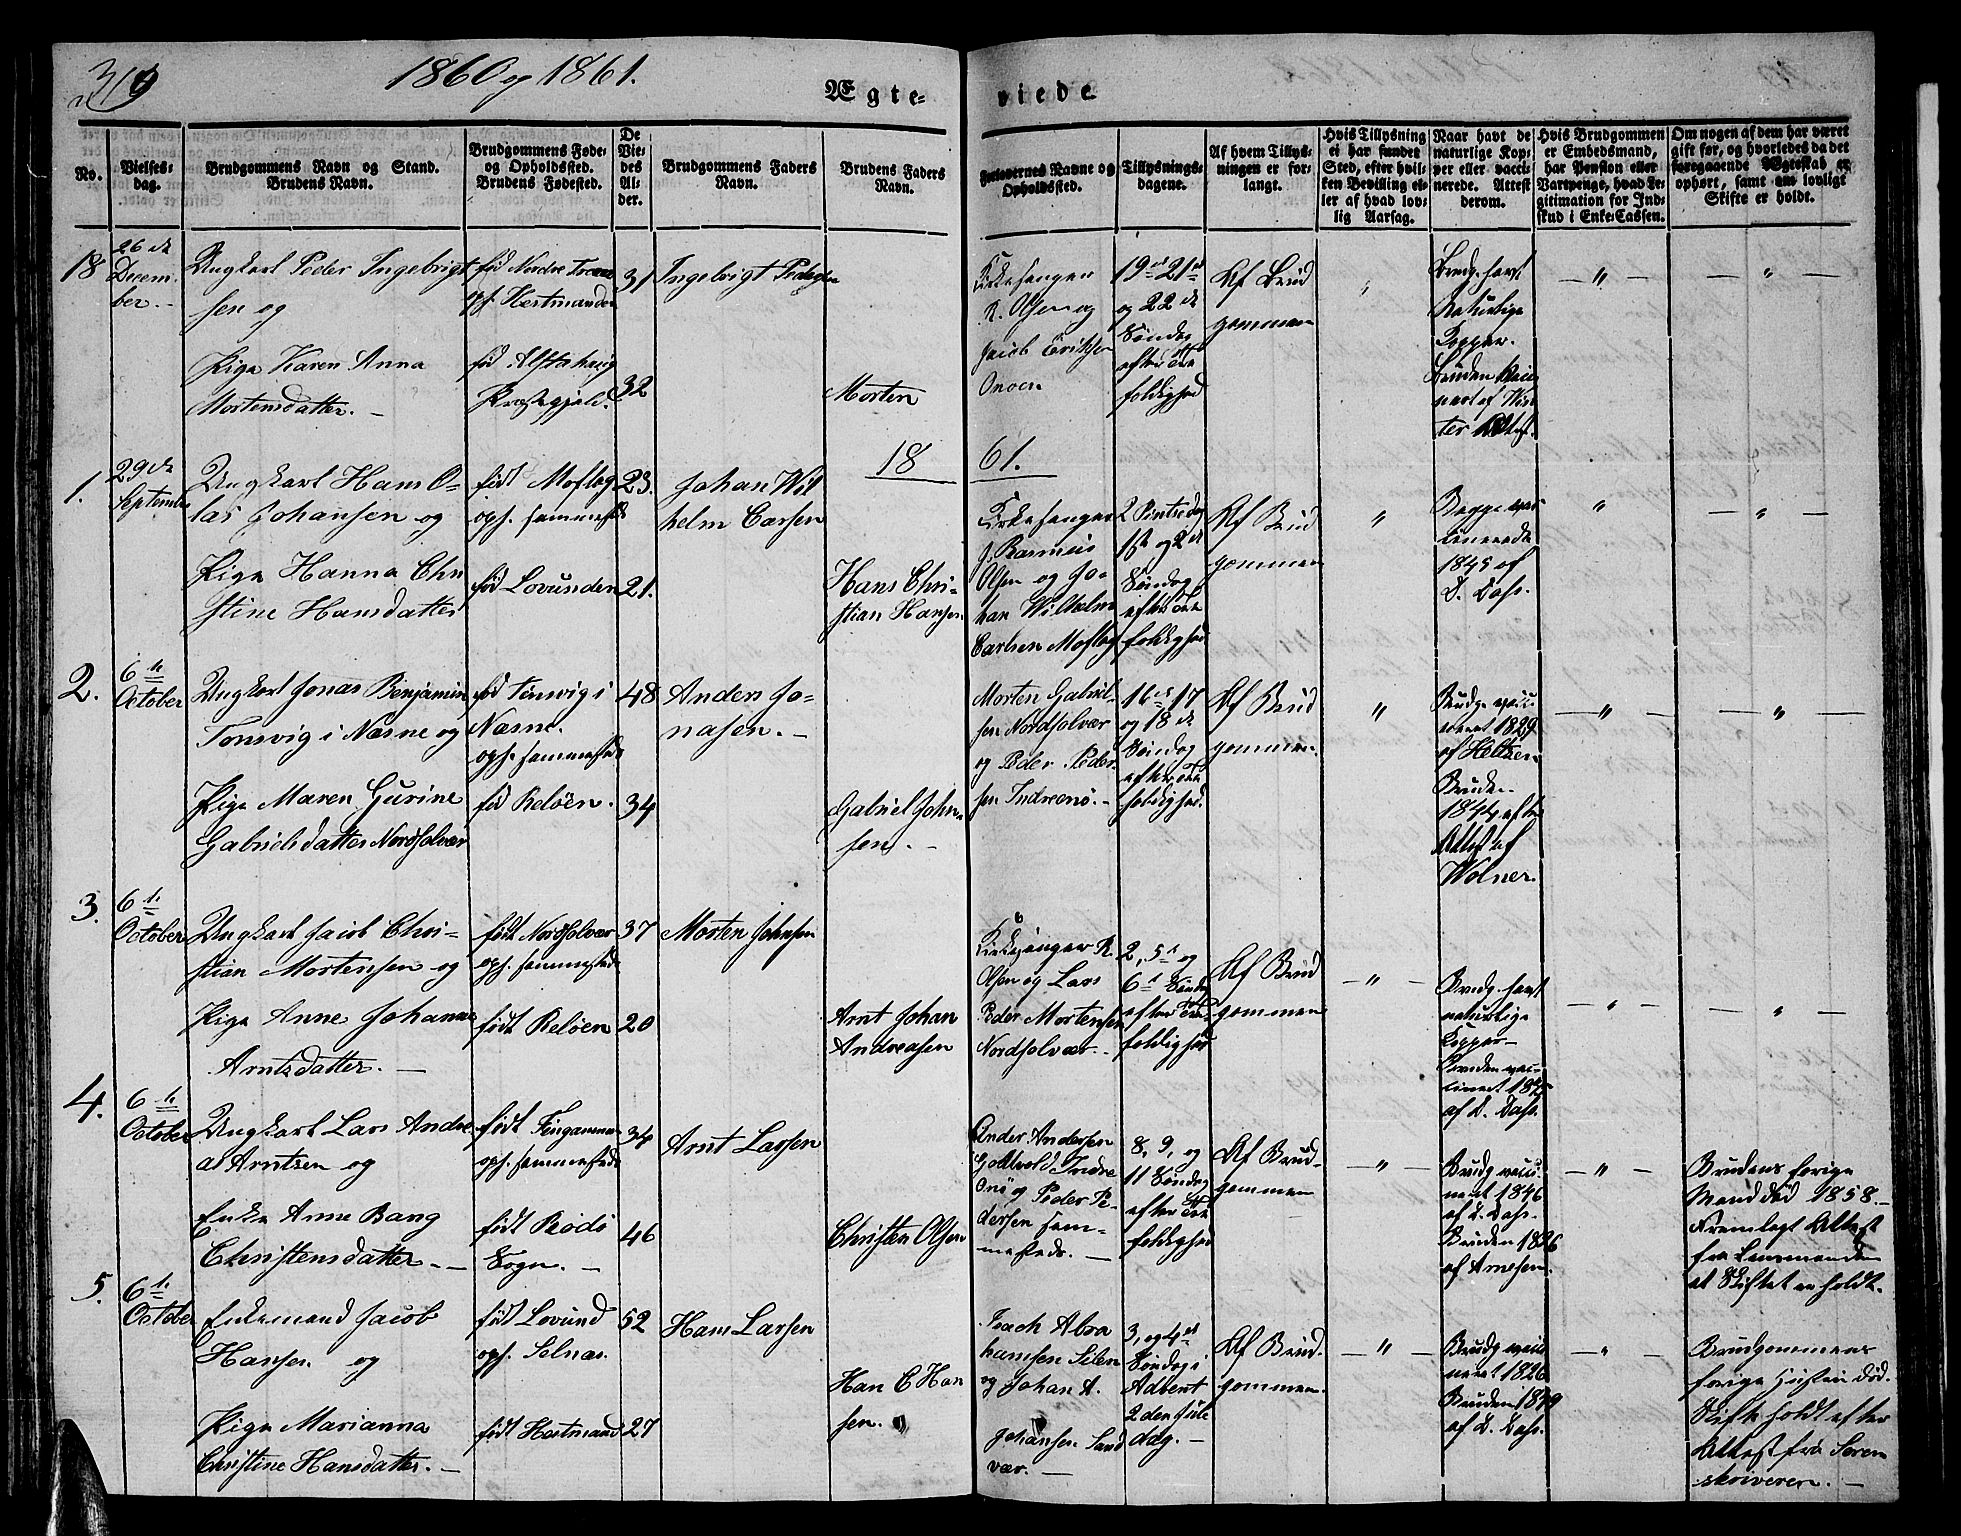 319
1860 og 1861.
Ægte-
viede
No.
Vielses-
dag.
Brudgommens Navn og Stand.
Brudens Navn.
Brudgommens Føde-
og Opholdssted.
Brudens Fødested.
De
Vie-
des
Al-
der.
Brudgommens Faders
Navn.
Brudens Faders
Navn.
Forlovernes Navne og
Opholdssted.
Tillysnings-
dagene.
Af hvem Tillys-
ningen er for-
langt.
Hvis Tillysning
ei har fundet
Sted, efter hvil-
ken Bevilling el-
ler af hvad lov-
lig Aarsag.
Naar havt de
naturlige Kop-
per eller vacci-
nerede. Attest
derom.
Hvis Brudgommen
er Embedsmand,
har Pension eller
Vartpenge, hvad Le-
gitimation for Ind-
skud i Enke-Cassen.
Om nogen af dem har været
gift før, og hvorledes da det
foregaaende Ægteskab er
ophørt, samt om lovligt
Skifte er holdt.
18
26 de
Decem-
ber. -
Ungkarl Peder Ingebrigt
sen og
Pige Karen Anna
Mortensdatter. -
fød Nordre
oph. Hestmanden
fød Alstahaug
Præstegjeld.
31
32
Ingebrigt Pedersen
Morten
Kirkesanger
R. Olsen og
Jacob Eriksen
Onøen
19de 21de
og 22 de
Søndag
efter Tre
foldighed
Af Brud
gommen
"
Brudg. havt
Naturlige
Kopper.
Bruden vacci
neret af Win
ter Attest.
— " —
— " —
18 61.
1.
29 de
September
Ungkarl Hans O-
las Johansen og
Pige Hanna Chri
stine Hansdatter
født Moflag
oph. sammesteds
fød Lovunden
23.
21.
Johan Wil
helm Carsen
Hans Chri-
stian Hansen
Kirkesanger
J. Rasmus
Olsen og Jo-
han Wilhelm
Carlsen Moflag
2 Pintsedag
1ste og 2de
Søndag
efter Tre
foldighed
Af Brud
gommen
"
Begge vac
cinerede
1845 af
D. Dass.
"
— " —
2.
6te
October
Ungkarl Jonas Benjamin
Tonsvig i Næsne og
Pige Maren Gurine
Gabrielsdatter Nordsolvær
fød Tonsvig i
Næsne.
oph. sammesteds
fød Reløen.
48
34
Anders Jo-
nasen. -
Gabriel John
sen. -
Morten Gabriel-
sen Nordsolvær
og Peder Peder
sen Indreonø. -
16de 17
og 18 de
Søndag
efter Tre
foldighed.
Af Brud
gommen.
"
Brudg. vacci
neret 1829
af Heltzen
Bruden
1844 efter
Attest af
Wolner.
— " —
— " —
3.
6te
October
Ungkarl Jacob Chri-
stian Mortensen og
Pige Anne Johanna
Arntsdatter. -
født Nordsolvær
oph. sammesteds
født Reløen
37
20
Morten Johnsen
Arnt Johan
Andreasen
Kirkesanger R.
Olsen og Lars
Peder Mortensen
Nordsolvær. -
2, 5te og
6te Søndag
efter Tre
foldighed
Af Brud
gommen
— " —
Brudg. havt
naturlige
Kopper -
Bruden vac-
cineret 1845
af D. Dass.
— " —
— " —
4.
6te
October
Ungkarl Lars Andre
as Arntsen og
Enke Anne Bang
Christensdatter. -
født
oph. sammesteds
født Rødø
Sogn. -
34
46
Arnt Larsen
Christen Olsen
Ander Andersen
Gottvold Indre
Onø og Peder Pe-
dersen sam-
mesteds. -
8, 9, og
11 Søndag
efter Tre
foldighed
Af Brud-
gommen
— " —
Brudg vacci-
neret 1846
af D. Dass.
Bruden 1826
af Arnesen.
— " —
Brudens forrige
Mand død 1858 -
Fremlagt Attest
fra Lensmanden
at Skiftet er holdt.
5.
6te
October
Enkemand Jacob
Hansen og
Pige Marianna
Christine Hansdatter. -
født Lovund
oph. Selnæs.
født Hestmand
52
27
Hans Larsen
Han C Han
sen.
Isach Abra
hamsen Selen
og Johan A.
Johansen Sand
vær. -
3, og 4de
Søndag i
Advent
2den Jule
dag. -
Af Brud.
gommen.
— " —
Brudg vacci
neret 1826
Bruden 1849
af D. Dass.
— " —
Brudgommens
forrige Hustru død.
Skifte holdt efter
Attest fra Soren
skriveren. -